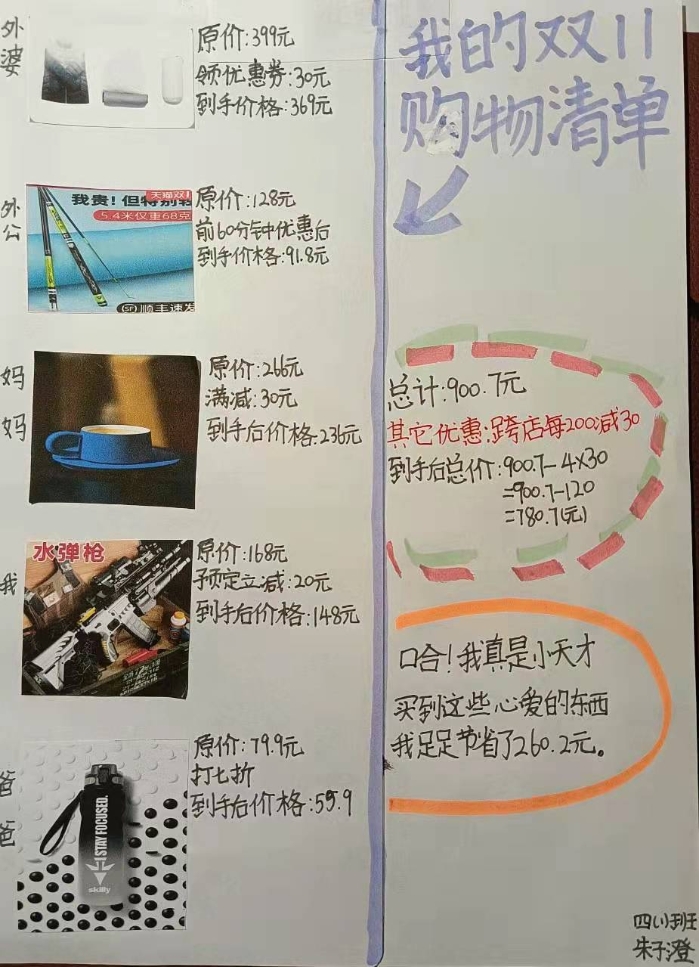 我的双11
购物清单
外婆
原价:399元
领优惠券:30元
到手价格:369元
外公
我贵!但特别轻
天猫双1
5.4米仅重68克
顺丰速发
原价:128元
前60分钟优惠后
到手价格:91.8元
妈妈
原价:266元
满减:30元
到手后价格:236元
我
水弹枪
原价:168元
预定立减:20元
到手后价格:148元
爸爸
STAY FOCUSED.
skilly
原价:79.9元
打七折
到手后价格:55.9
总计:900.7元
其它优惠:跨店每200减30
到手后总价:900.7-4×30
=900.7-120
=780.7(元)
哈!我真是小天才
买到这些心爱的东西
我足足节省了260.2元。
四(1)班
朱子澄